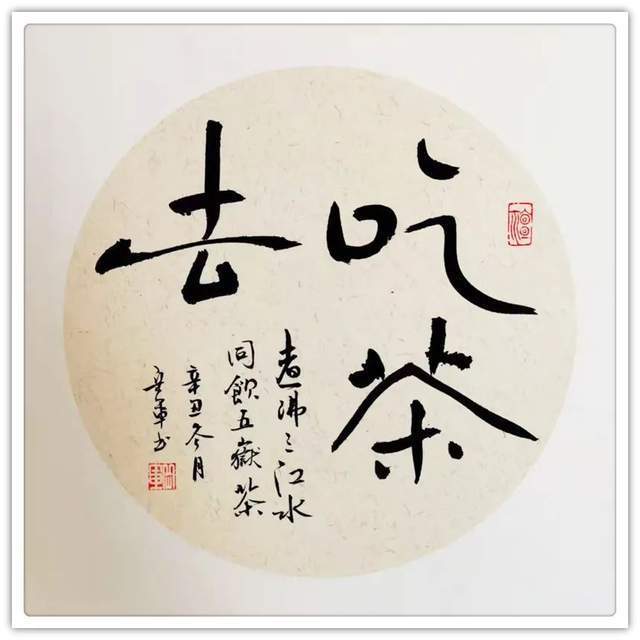 吃茶
去
煮沸三江水
同飲五嶽茶
辛丑冬月